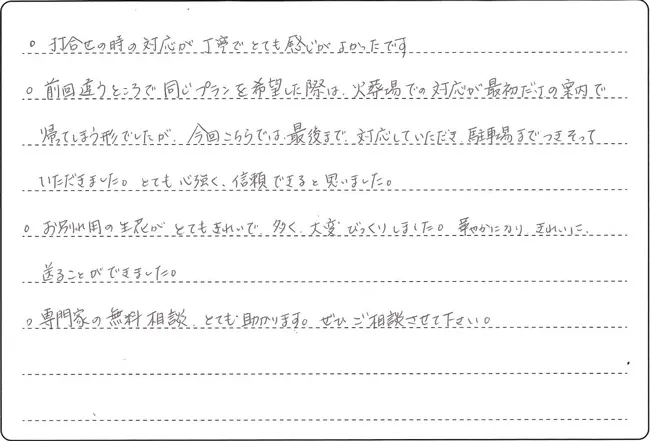 。打合せの時の対応が丁寧でとても感じがよかったです
。前回違うところで同じプランを希望した際は、火葬場での対応が最初だけの案内で
帰ってしまう形でしたが、今回こちらでは、最後まで、対応していただき、駐車場までつきそって
いただきました。とても心強く、信頼できると思いました。
。お別れ用の生花がとてもきれいで、多く、大変びっくりしました。華やかになり、きれいに、
送ることができました。
。専門家の無料相談、とても助かります。ぜひご相談させて下さい。